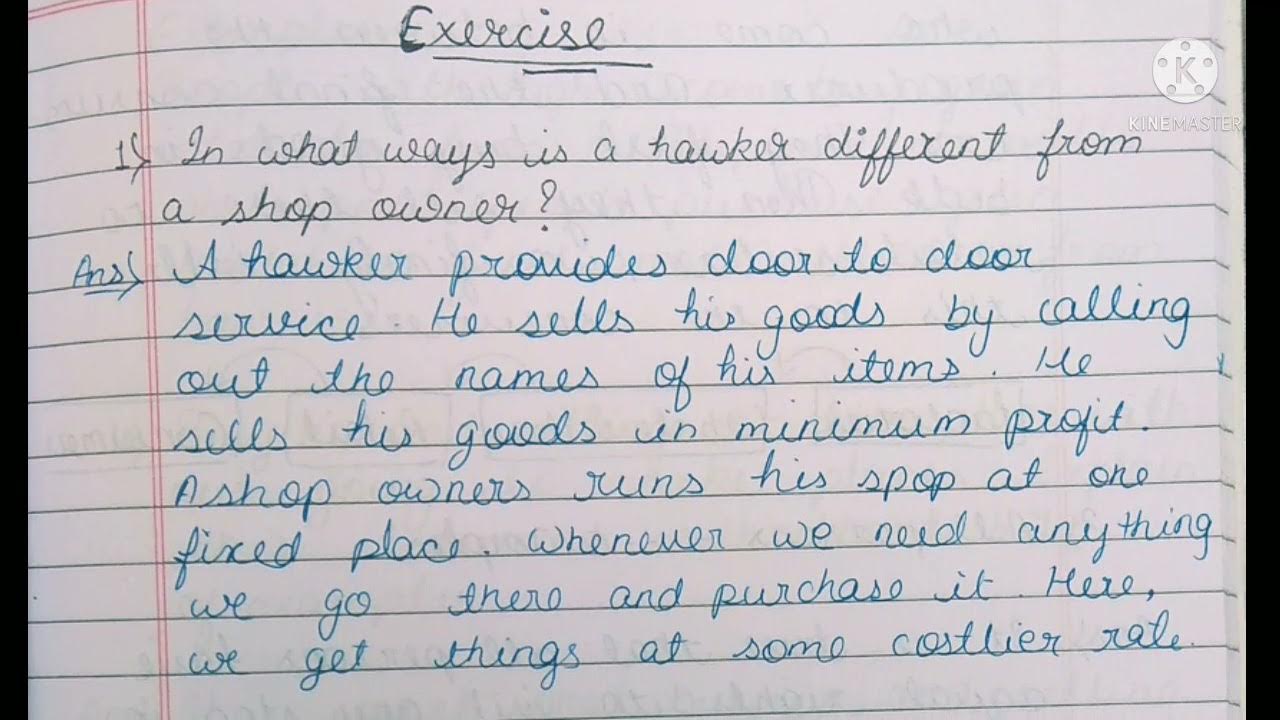 Exercise
KINEMASTER
1) In what ways is a hawker different from
a shop owner?
Ans) A hawker provides door to door
service. He sells his goods by calling
out the names of his items. He
sells his goods in minimum profit.
A shop owners runs his spop at one
fixed place. Whenever we need anything
we go there and purchase it. Here,
we get things at some costlier rate.